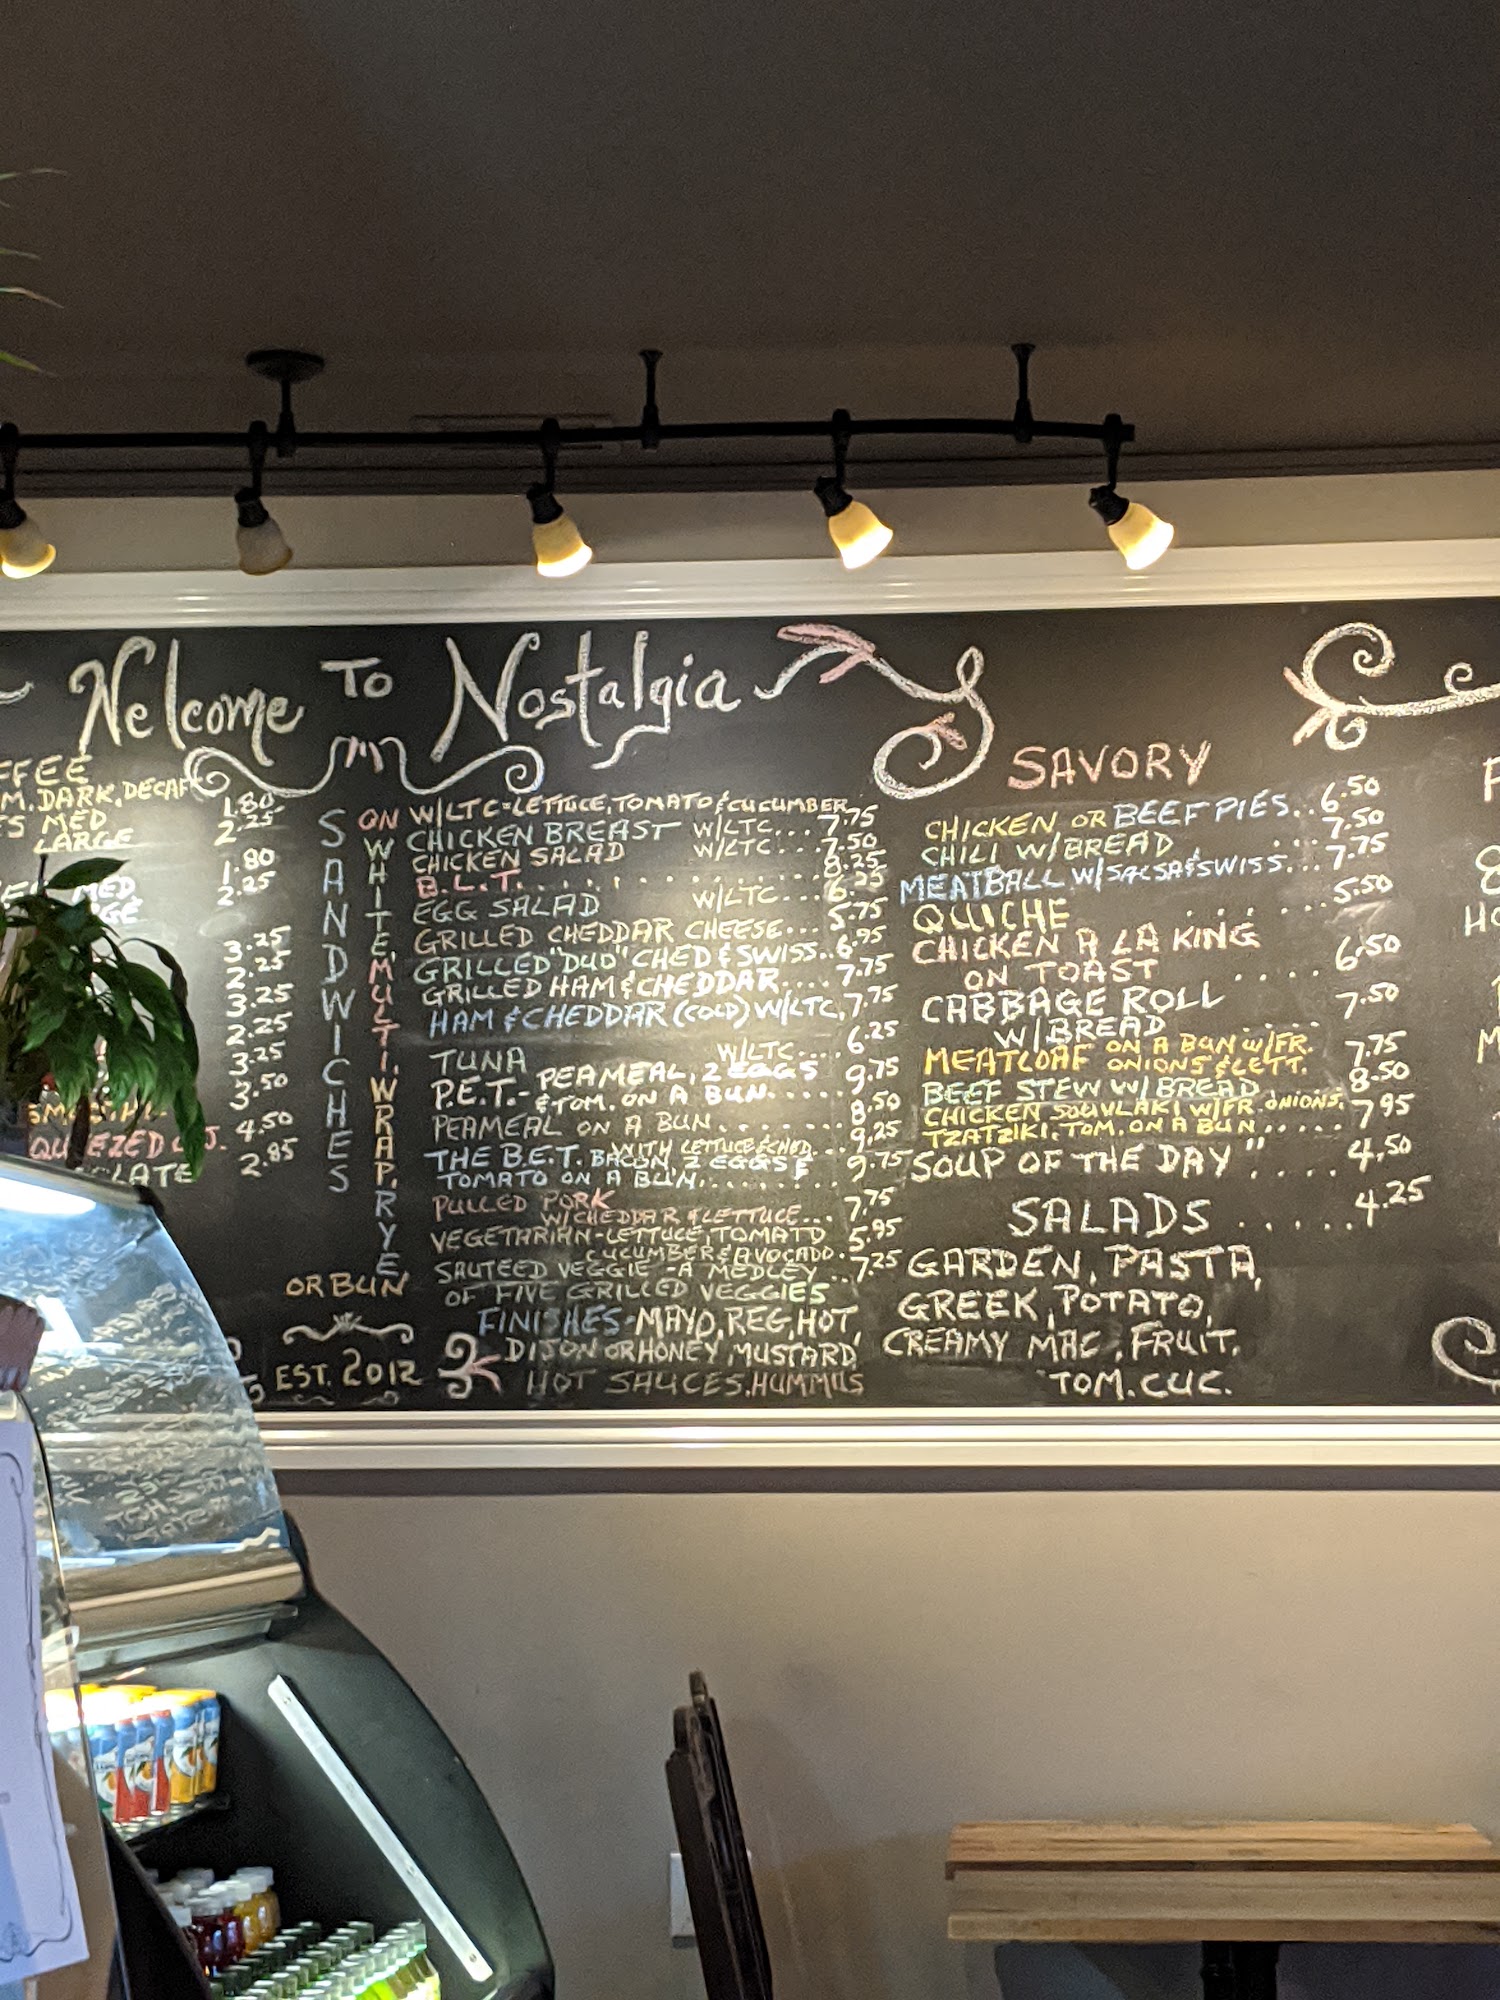 Welcome TO Nostalgia
FFEE
M. DARK, DECAF
ES MED 1.80
LARGE 2.25
MED 1.80
2.25
3.25
2.25
3.25
2.25
3.25
3.50
4.50
LATE 2.85
SANDWICHES
ON WHITE, MULTI, WRAP, RYE
OR BUN
EST. 2012
W/LTC=LETTUCE, TOMATO & CUCUMBER
CHICKEN BREAST W/LTC... 7.75
CHICKEN SALAD W/LTC... 7.50
B.L.T. ........ 8.25
EGG SALAD W/LTC... 6.25
GRILLED CHEDDAR CHEESE... 5.75
GRILLED "DUO" CHED & SWISS.. 6.95
GRILLED HAM & CHEDDAR.... 7.75
HAM & CHEDDAR (COLD) W/LTC. 7.75
TUNA W/LTC.... 6.25
P.E.T.- PEAMEAL, 2 EGGS
& TOM. ON A BUN..... 9.75
PEAMEAL ON A BUN....... 8.50
WITH LETTUCE & CHED... 9.25
THE B.E.T. BACON, 2 EGGS &
TOMATO ON A BUN........ 9.75
PULLED PORK
W/CHEDDAR & LETTUCE... 7.75
VEGETARIAN-LETTUCE, TOMATO
CUCUMBER & AVOCADO. 5.95
SAUTEED VEGGIE -A MEDLEY ... 7.25
OF FIVE GRILLED VEGGIES
FINISHES-MAYO, REG, HOT,
DIJON OR HONEY, MUSTARD
HOT SAUCES, HUMMUS
SAVORY
CHICKEN OR BEEF PIES... 6.50
CHILI W/BREAD ... 7.50
MEATBALL W/SALSA & SWISS... 7.75
QUICHE ..... 5.50
CHICKEN A LA KING
ON TOAST ..... 6.50
CABBAGE ROLL
W/BREAD ..... 7.50
MEATLOAF ON A BUN W/FR.
ONIONS & LETT. 7.75
BEEF STEW W/BREAD..... 8.50
CHICKEN SOUVLAKI W/FR. ONIONS,
TZATZIKI, TOM. ON A BUN..... 7.95
SOUP OF THE DAY".... 4.50
SALADS ......4.25
GARDEN, PASTA,
GREEK, POTATO,
CREAMY MAC, FRUIT,
TOM. CUC.